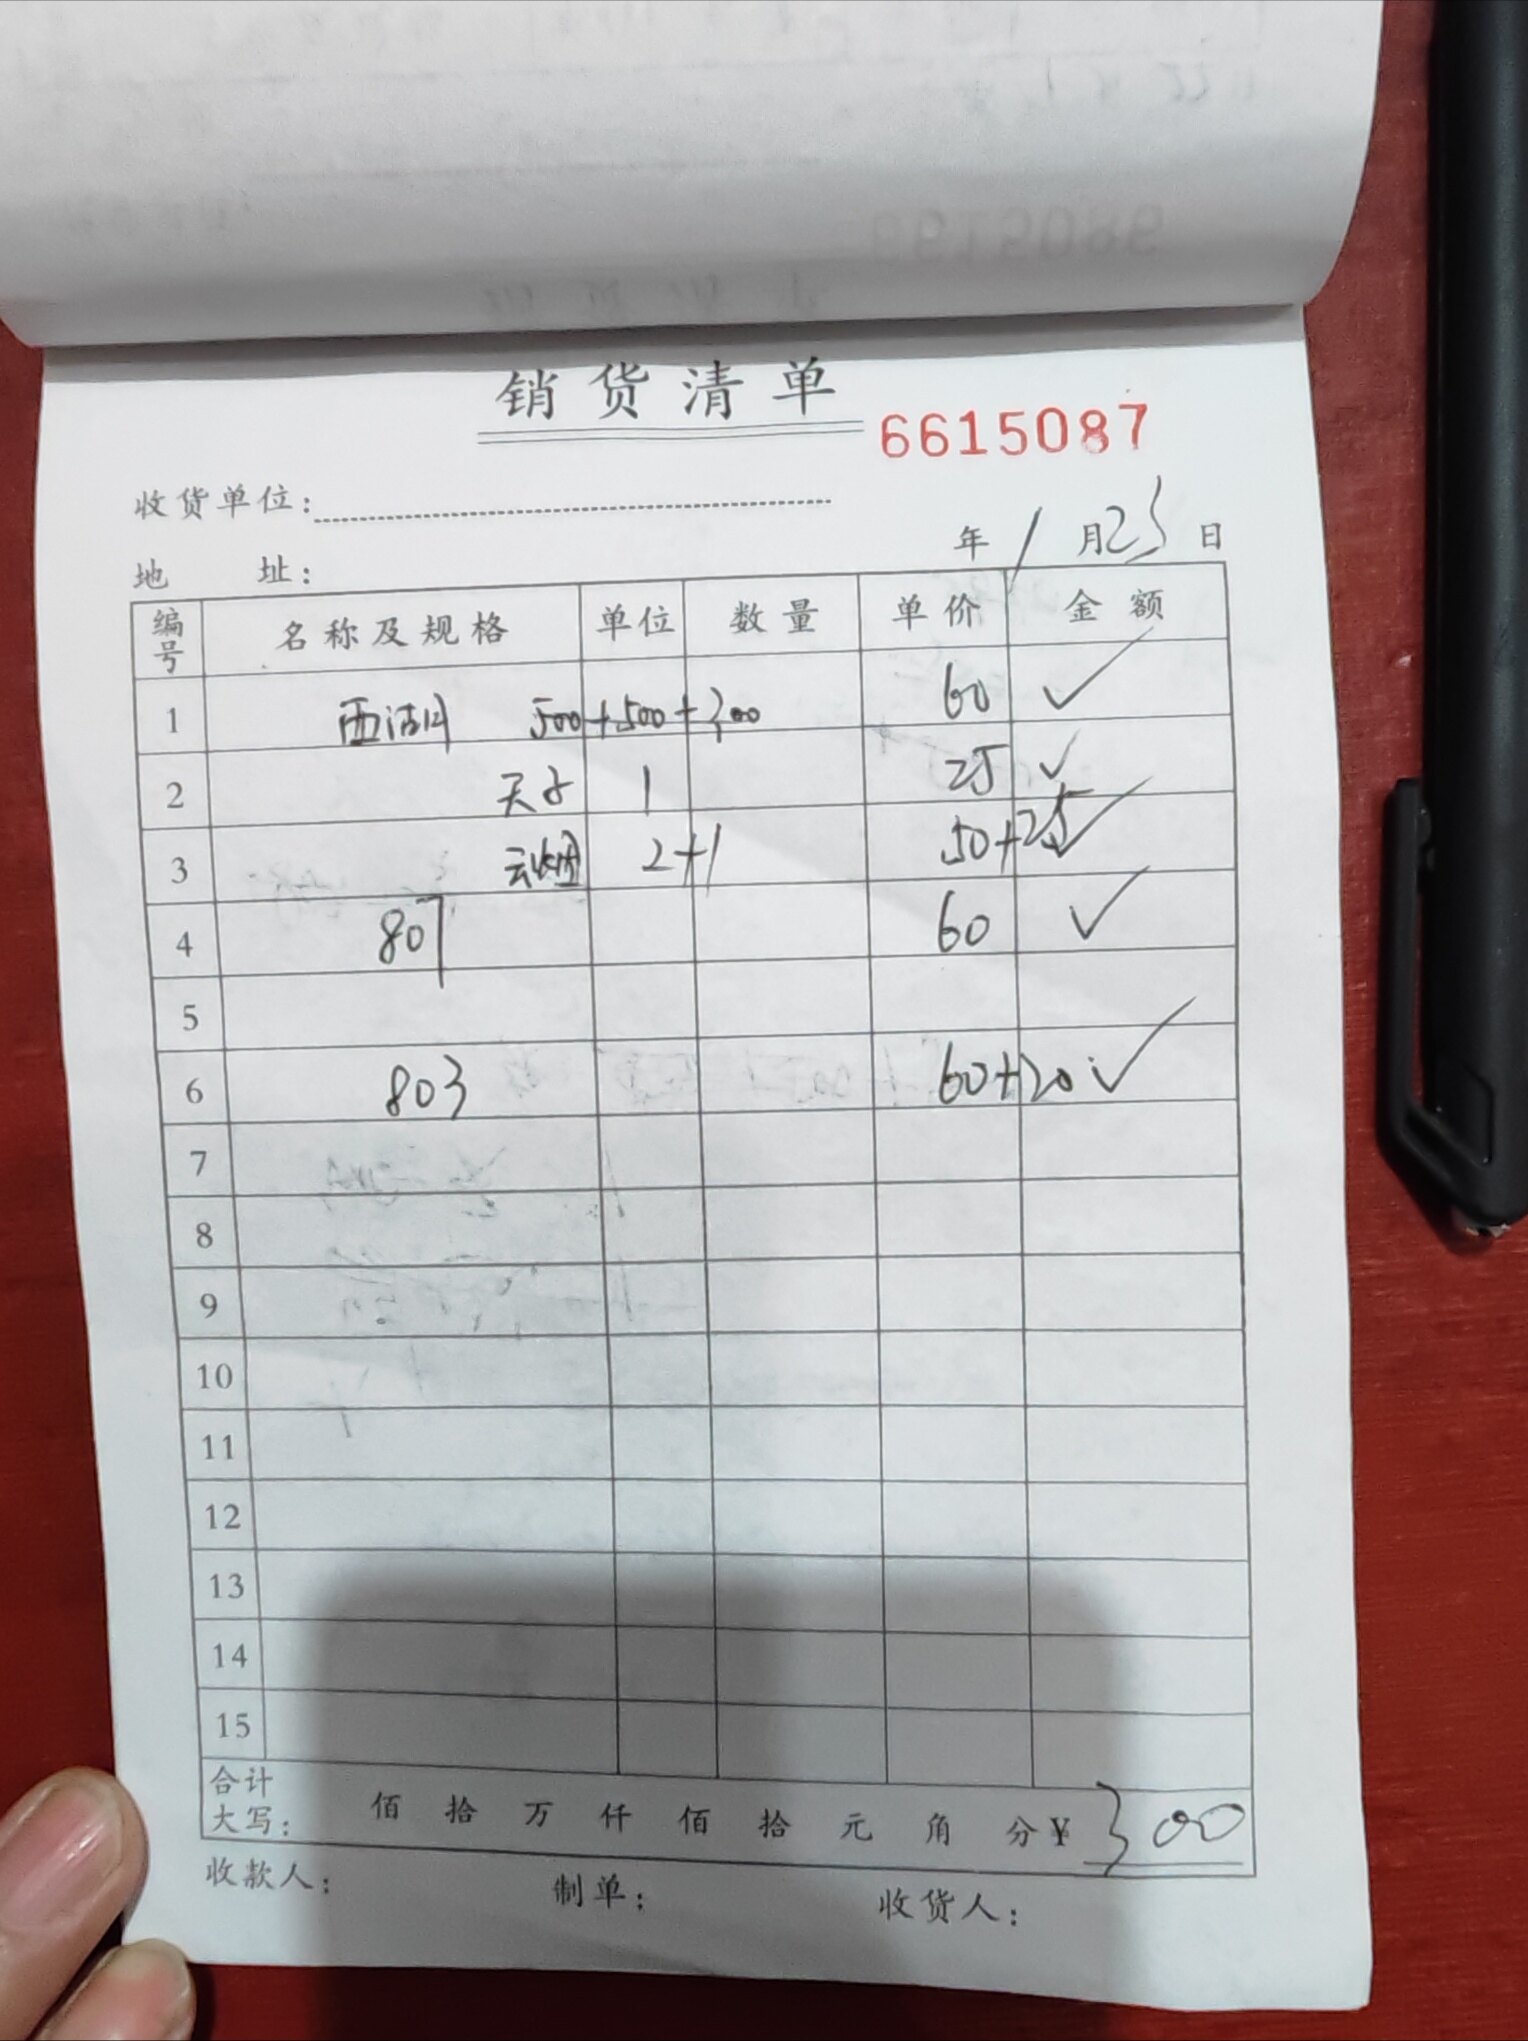 销货清单
6615087
收货单位:
年 1 月 23 日
地 址:
编号 名称及规格 单位 数量 单价 金额
1 西湖 500+500+300 60 ✓
2 天子 1 25 ✓
3 云烟 2+1 50+25 ✓
4 807 60 ✓
5
6 803 60+20 ✓
7
8
9
10
11
12
13
14
15
合计
大写: 佰 拾 万 仟 佰 拾 元 角 分 ¥ 300
收款人: 制单: 收货人: